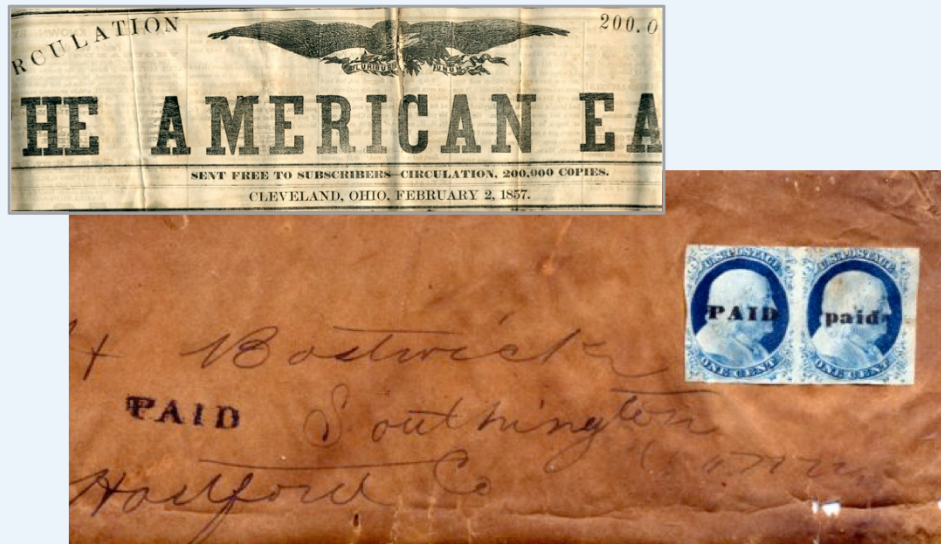 RCULATION
200.0
E PLURIBUS UNUM
HE AMERICAN EA
SENT FREE TO SUBSCRIBERS—CIRCULATION, 200,000 COPIES.
CLEVELAND, OHIO, FEBRUARY 2, 1857.
U.S. POSTAGE U.S. POSTAGE
PAID paid
ONE CENT ONE CENT
Bostwick
PAID Southington
Conn
Hartford Co